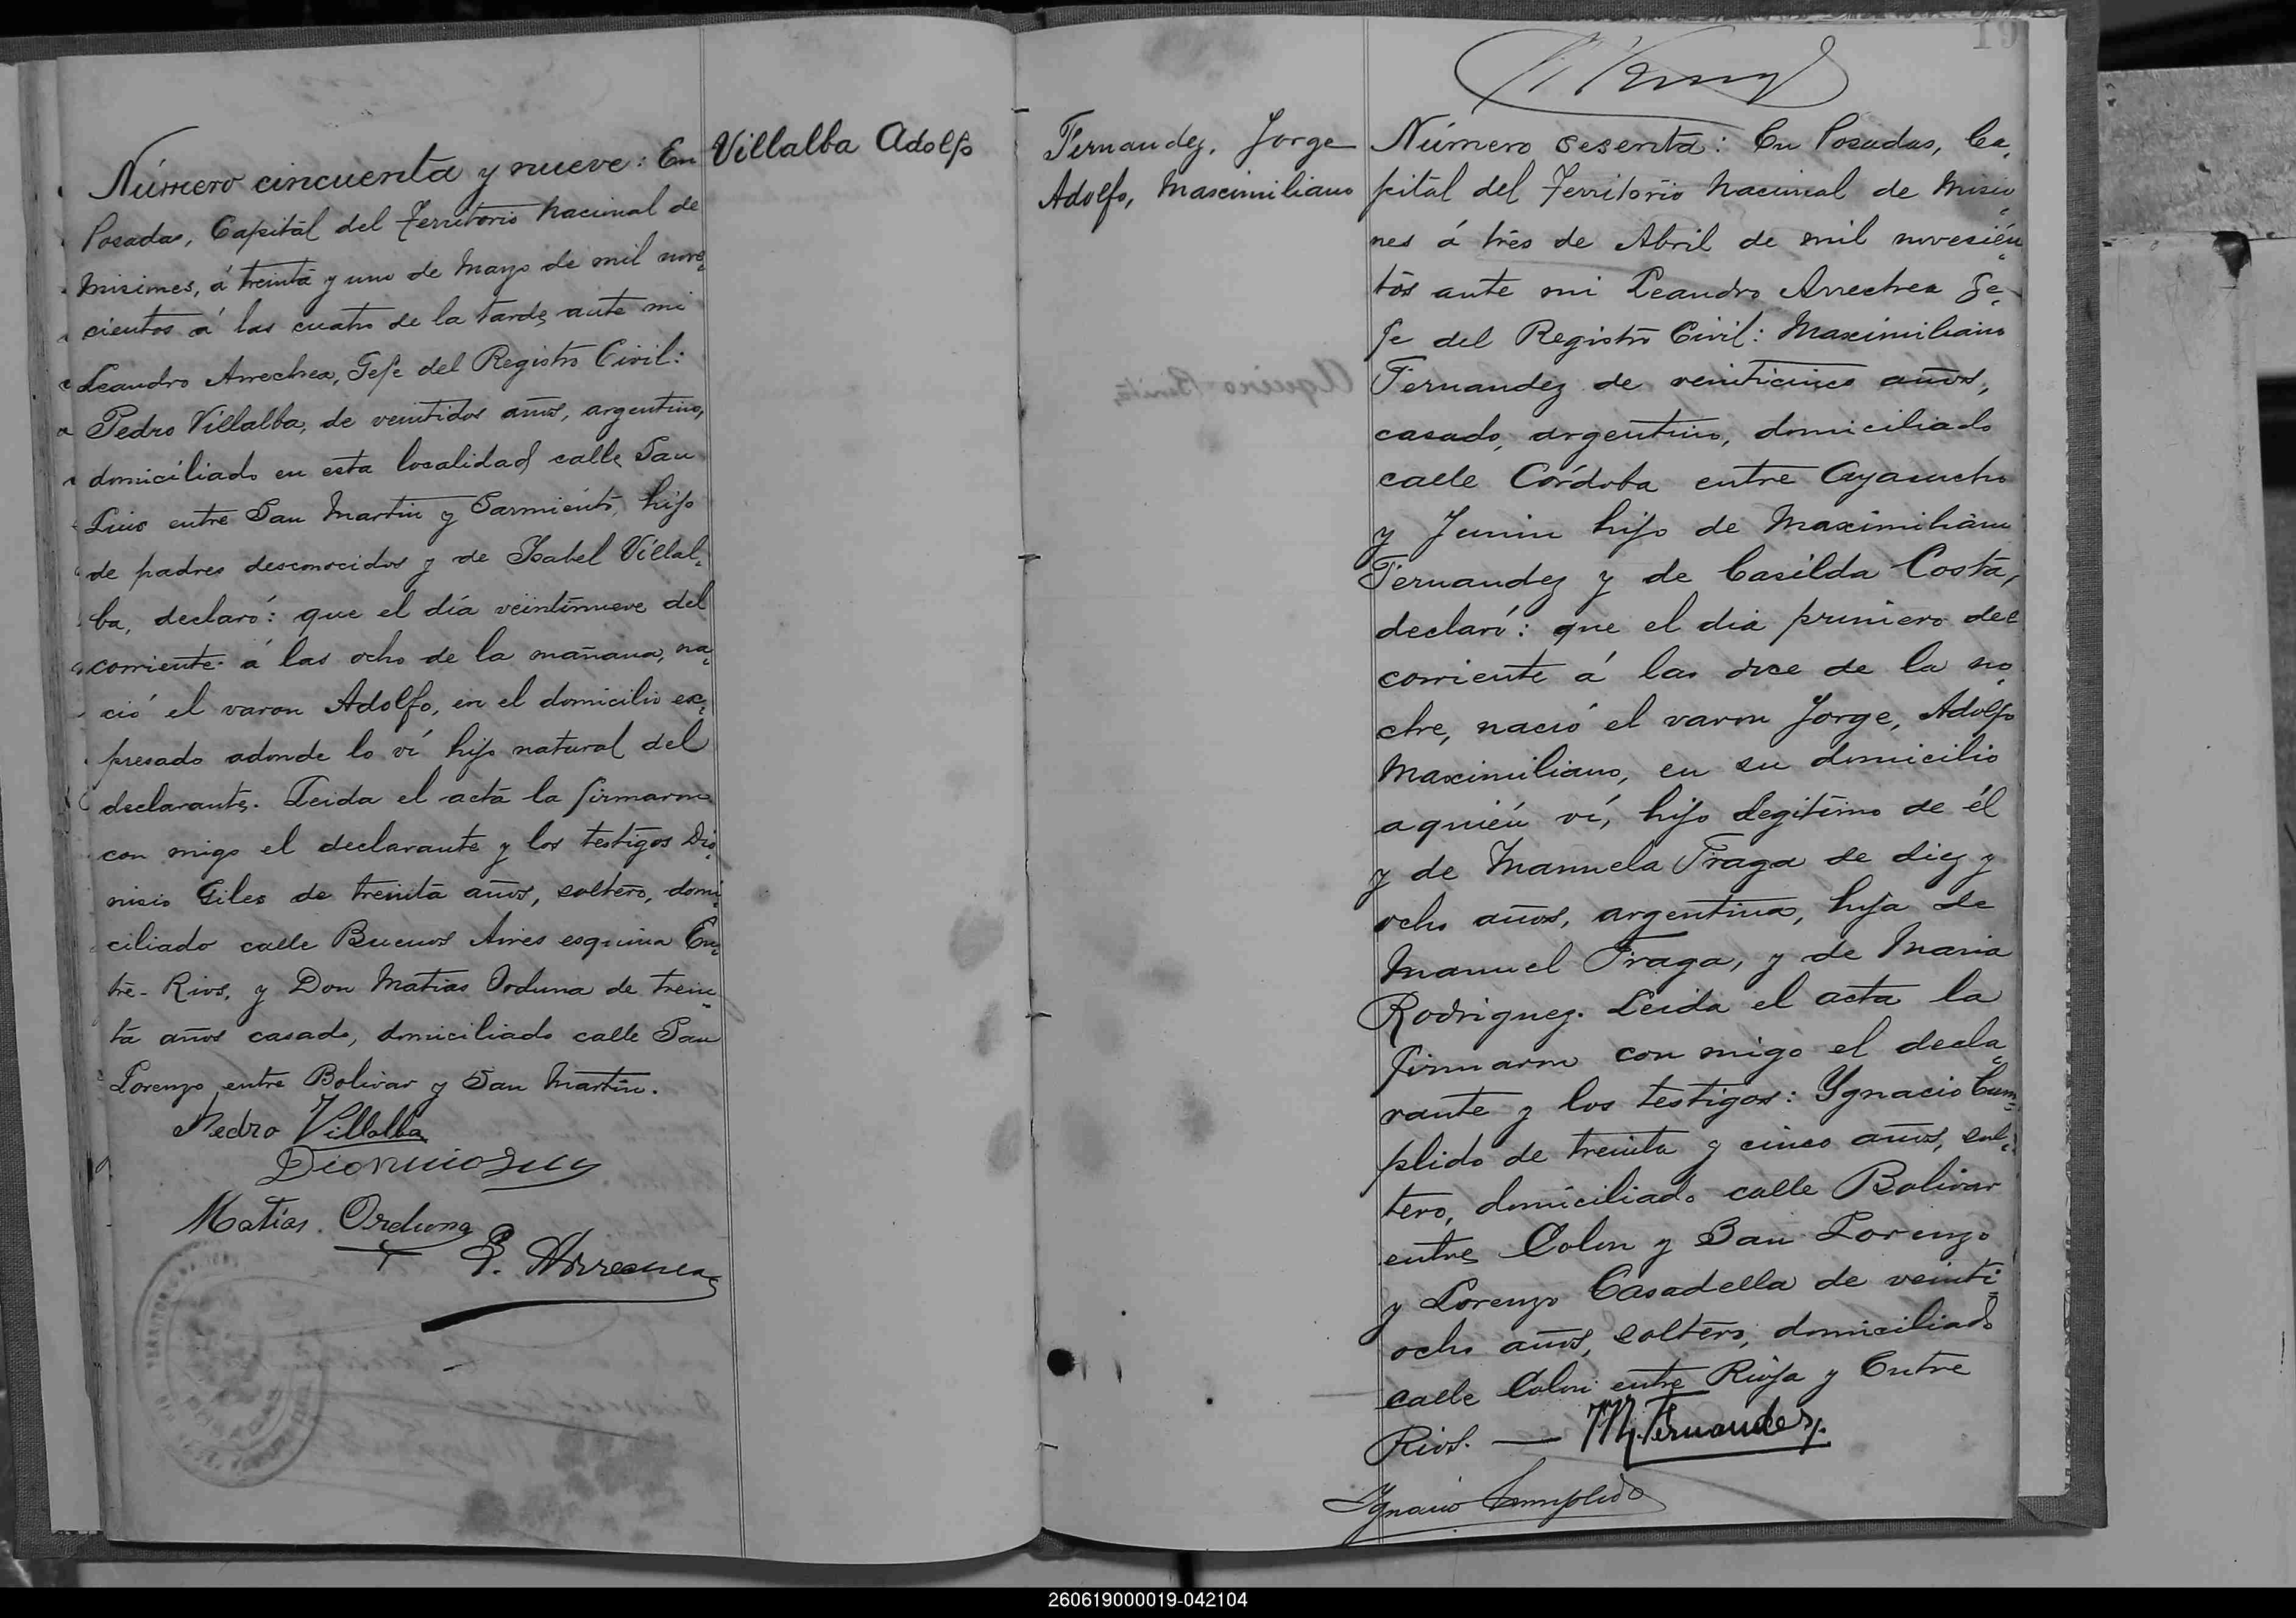 Villalba Adolfo
Número cincuenta y nueve: En
Posadas, Capital del Territorio Nacional de
Misiones, á treinta y uno de Mayo de mil nove
cientos á las cuatro de la tarde ante mi
Leandro Arrechea, Gefe del Registro Civil:
Pedro Villalba, de veintidos años, argentino,
domiciliado en esta localidad calle San
Luis entre San Martin y Sarmiento, hijo
de padres desconocidos y de Isabel Villal-
ba, declaró: que el día veintinueve del
corriente á las ocho de la mañana, na
ció el varon Adolfo, en el domicilio ex
presado adonde lo ví hijo natural del
declarante. Leida el acta la firmaron
con migo el declarante y los testigos Dio
nisio Giles de treinta años, soltero, domi
ciliado calle Buenos Aires esquina En
tre-Rios, y Don Matias Orduna de trein
ta años casado, domiciliado calle San
Lorenzo entre Bolivar y San Martin.
Pedro Villalba
Matias Orduna
L. Arrechea
19
Fernandez, Jorge
Adolfo, Maximiliano
Número sesenta: En Posadas, Ca
pital del Territorio Nacional de Misio
nes á tres de Abril de mil novecién
tos ante mi Leandro Arrechea Ge
fe del Registro Civil: Maximiliano
Fernandez de veinticinco años,
casado, argentino, domiciliado
calle Córdoba entre Ayacucho
y Junin hijo de Maximiliano
Fernandez y de Casilda Costa,
declaró: que el dia primero del
corriente á las doce de la no
che, nació el varon Jorge, Adolfo
Maximiliano, en su domicilio
aquién ví, hijo legitimo de él
y de Manuela Fraga de diez y
ocho años, argentina, hija de
Manuel Fraga, y de Maria
Rodriguez. Leida el acta la
firmaron con migo el decla
rante y los testigos: Ygnacio Cum
plido de treinta y cinco años, sol
tero, domiciliado calle Bolivar
entre Colon y San Lorenzo
y Lorenzo Casadella de veinti
ocho años, soltero, domiciliado
calle Colon entre Rioja y Entre
Rios. — M. Fernandez.
Ygnacio Cumplido
260619000019-042104